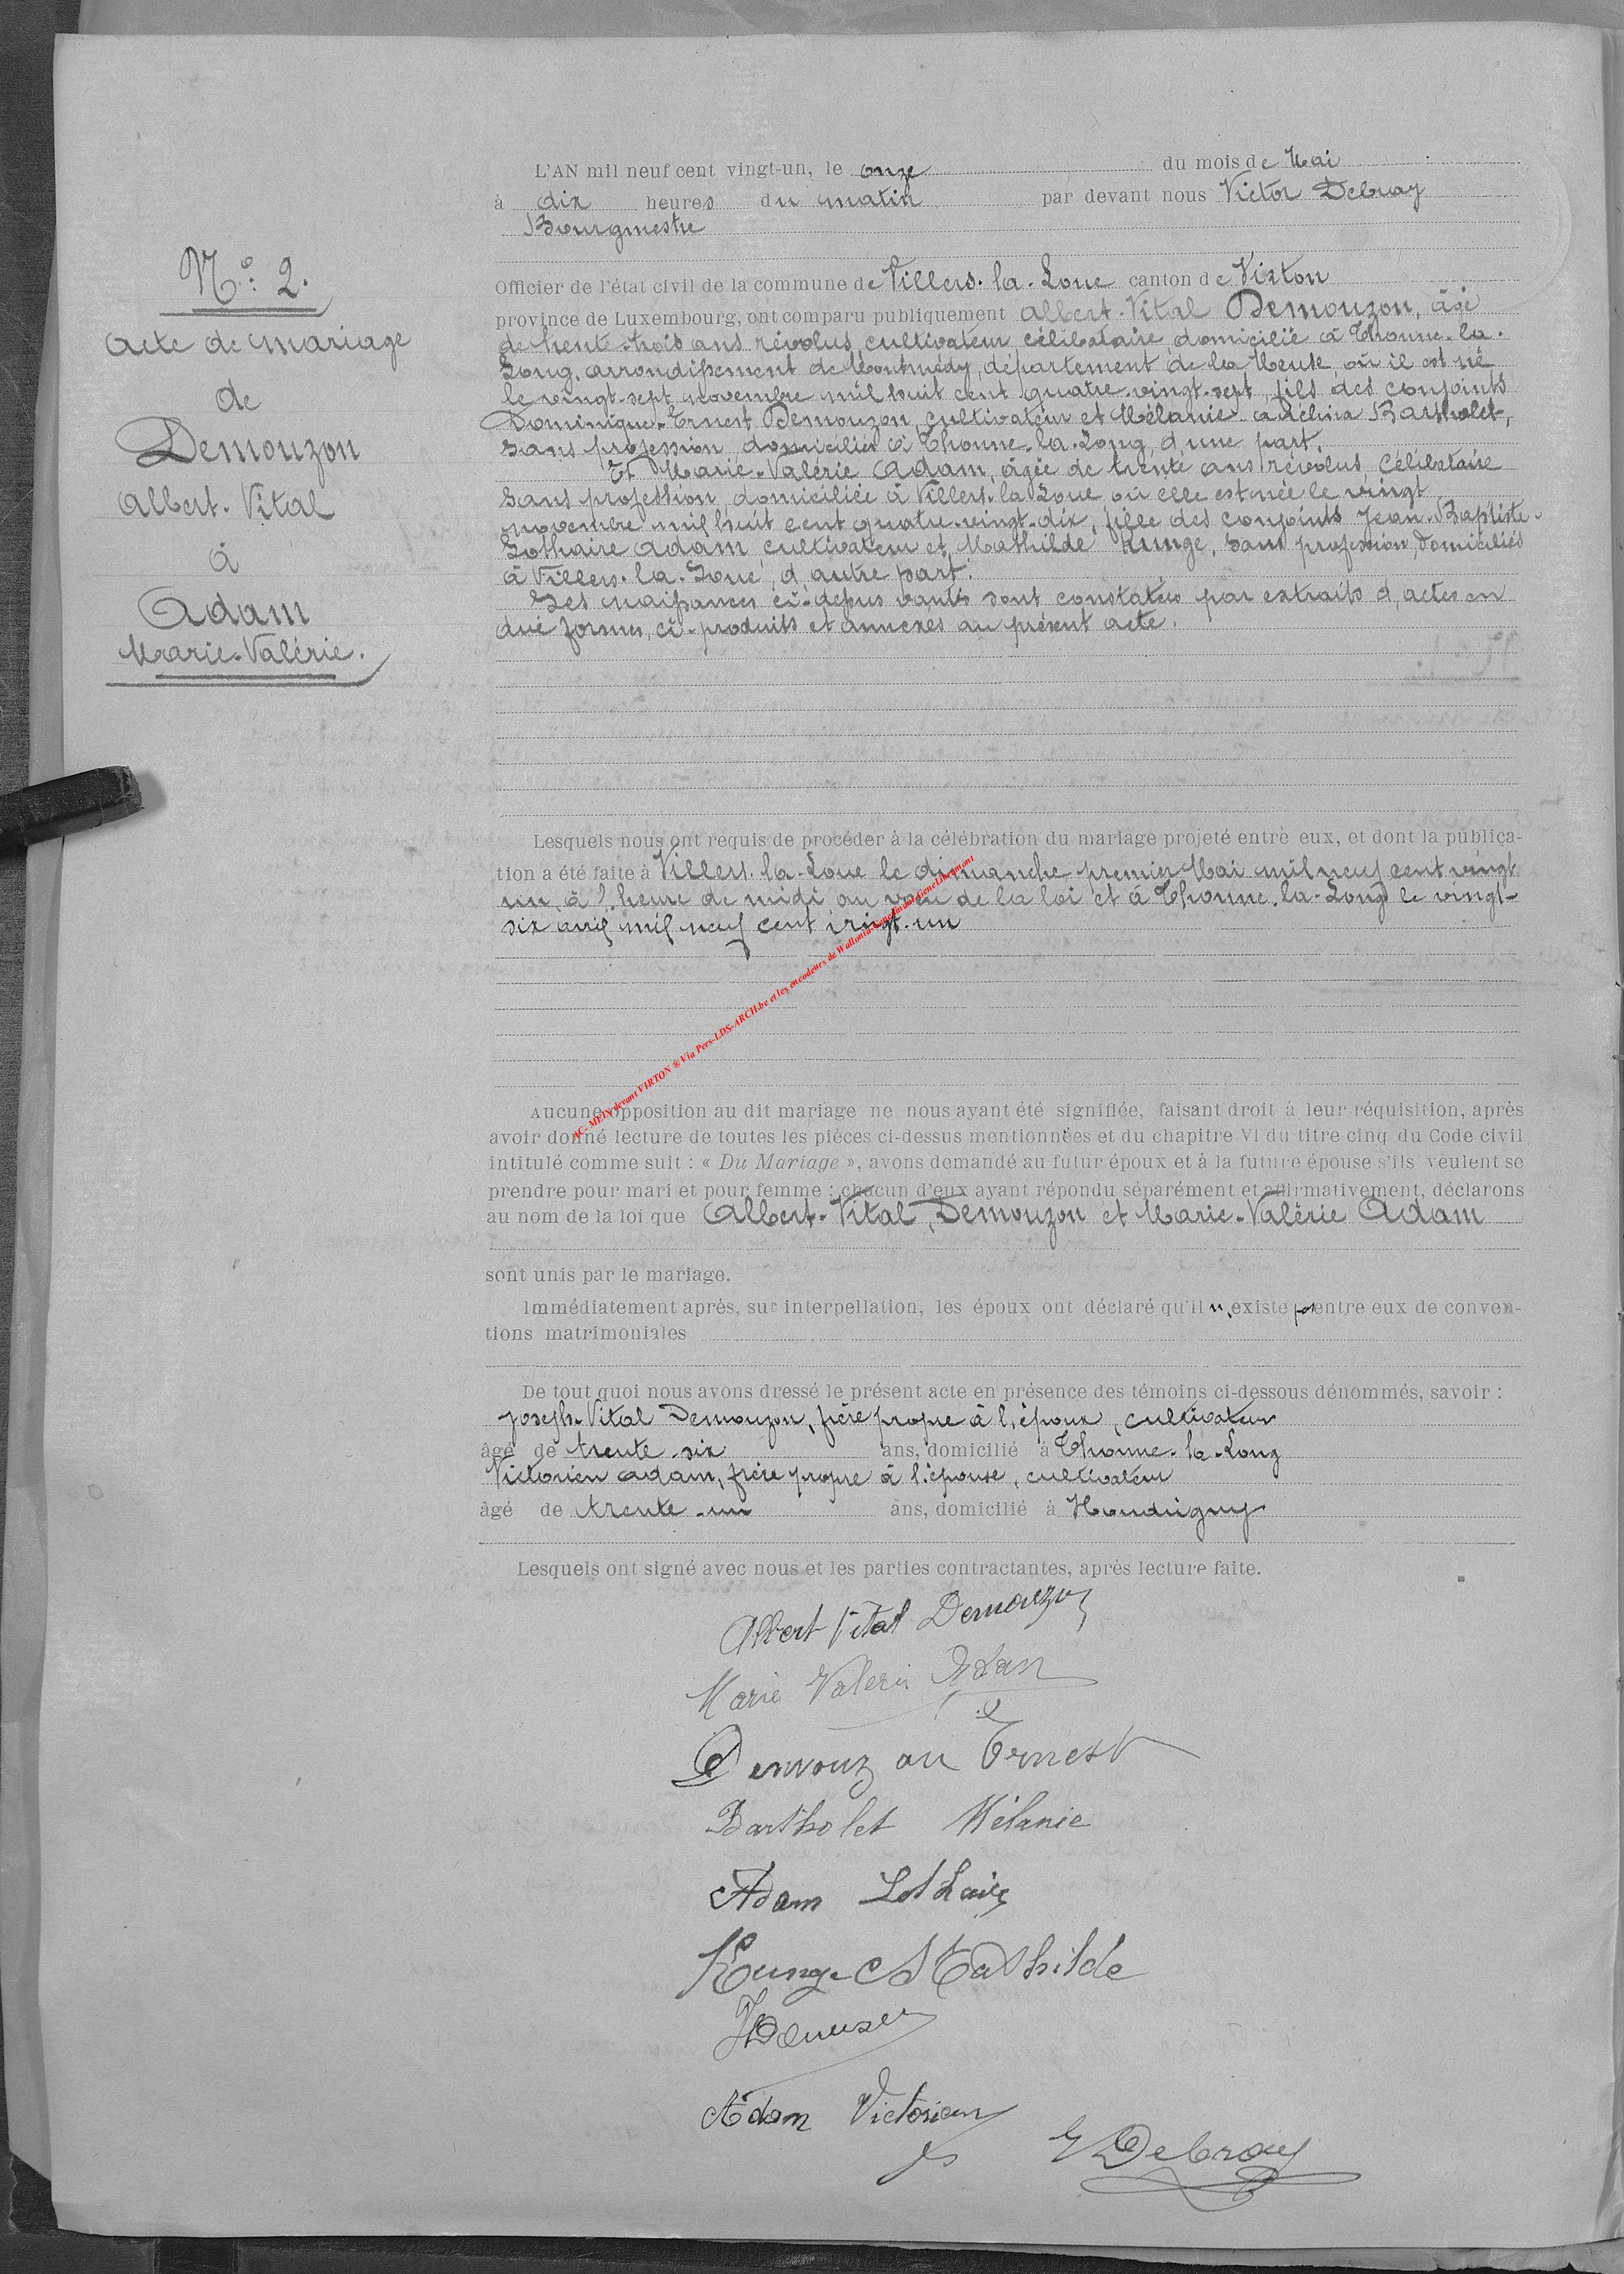 N° 2.
Acte de mariage
de
Demouzon
Albert-Vital
à
Adam
Marie-Valérie.
L'AN mil neuf cent vingt-un, le onze du mois de Mai
à dix heures du matin par devant nous Victor Debray
Bourgmestre
Officier de l'état civil de la commune de Villers-la-Loue canton de Virton
province de Luxembourg, ont comparu publiquement Albert-Vital Demouzon, âgé
de trente-trois ans révolus, cultivateur célibataire, domicilié à Thonne-la-
Long, arrondissement de Montmédy, département de la Meuse, où il est né
le vingt-sept novembre mil huit cent quatre-vingt-sept, fils des conjoints
Dominique-Ernest Demouzon, cultivateur et Mélanie-Adelina Bartholet,
sans profession, domiciliés à Thonne-la-Long, d'une part.
Et Marie-Valérie Adam, âgée de trente ans révolus, célibataire
sans profession, domiciliée à Villers-la-Loue où elle est née le vingt
novembre mil huit cent quatre-vingt-dix, fille des conjoints Jean-Baptiste-
Lothaire Adam cultivateur et Mathilde Kunge, sans profession, domiciliés
à Villers-la-Loue, d'autre part.
Les naissances ci-dessus vantés sont constatées par extraits d'actes en
due formes, ci-produits et annexés au présent acte.
Lesquels nous ont requis de procéder à la célébration du mariage projeté entre eux, et dont la publica-
tion a été faite à Villers-la-Loue le dimanche premier Mai mil neuf cent vingt
un, à l'heure de midi au vœu de la loi et à Thonne-la-Long le vingt-
six avril mil neuf cent vingt-un
AC- MEIX devant VIRTON ® Via Pers-LDS-ARCH.be et les encodeurs de Wallonia
Aucune opposition au dit mariage ne nous ayant été signifiée, faisant droit à leur réquisition, après
avoir donné lecture de toutes les pièces ci-dessus mentionnées et du chapitre VI du titre cinq du Code civil
intitulé comme suit : « Du Mariage », avons demandé au futur époux et à la future épouse s'ils veulent se
prendre pour mari et pour femme : chacun d'eux ayant répondu séparément et affirmativement, déclarons
au nom de la loi que Albert-Vital Demouzon et Marie-Valérie Adam
sont unis par le mariage.
Immédiatement après, sur interpellation, les époux ont déclaré qu'il n'existe pas entre eux de conven-
tions matrimoniales
De tout quoi nous avons dressé le présent acte en présence des témoins ci-dessous dénommés, savoir :
Joseph-Vital Demouzon, frère propre à l'époux, cultivateur
âgé de trente-six ans, domicilié à Thonne-la-Long
Victorien Adam, frère propre à l'épouse, cultivateur
âgé de trente-un ans, domicilié à Houdrigny
Lesquels ont signé avec nous et les parties contractantes, après lecture faite.
Albert Vital Demouzon
Marie Valerie Adam
Demouzon Ernest
Bartholet Mélanie
Adam Lothaire
Kunge Mathilde
Adam Victorien
V Debray